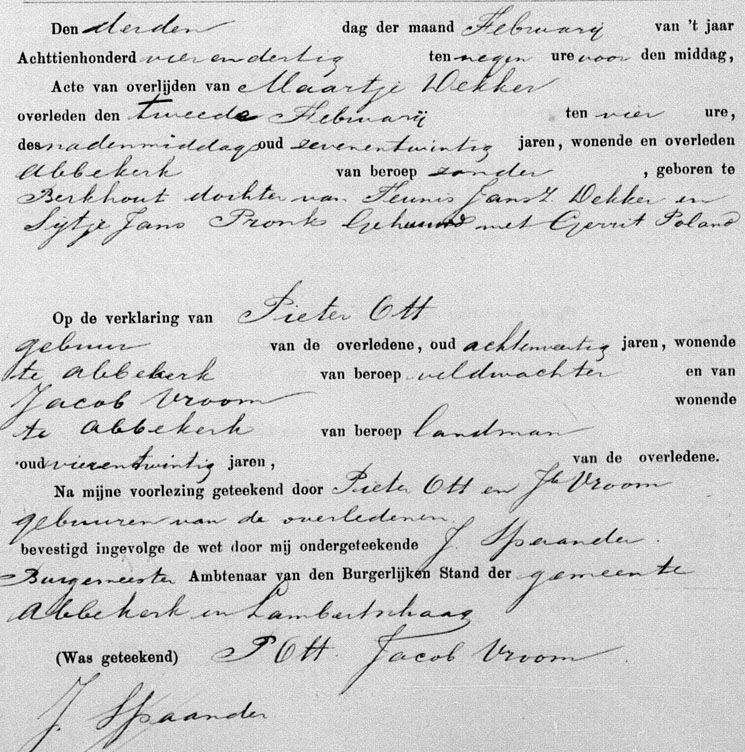 Den derden dag der maand Februarij van 't jaar
Achttienhonderd vier en dertig ten negen ure voor den middag,
Acte van overlijden van Maartje Dekker
overleden den tweede Februarij ten vier ure,
des nadenmiddags oud zevenentwintig jaren, wonende en overleden
Abbekerk van beroep zonder , geboren te
Berkhout dochter van Teunis Jansz Dekker en
Sijtje Jans Pronk Gehuwd met Gerrit Poland
Op de verklaring van Pieter Ott
gebuur van de overledene, oud achtenveertig jaren, wonende
te Abbekerk van beroep veldwachter en van
Jacob Vroom wonende
te Abbekerk van beroep landman
oud vierentwintig jaren, van de overledene.
Na mijne voorlezing geteekend door Pieter Ott en Jb Vroom
gebuuren van de overledenen
bevestigd ingevolge de wet door mij ondergeteekende J. Spaander.
Burgemeester Ambtenaar van den Burgerlijken Stand der gemeente
Abbekerk en Lambertschaag
(Was geteekend) P Ott. Jacob Vroom.
J. Spaander